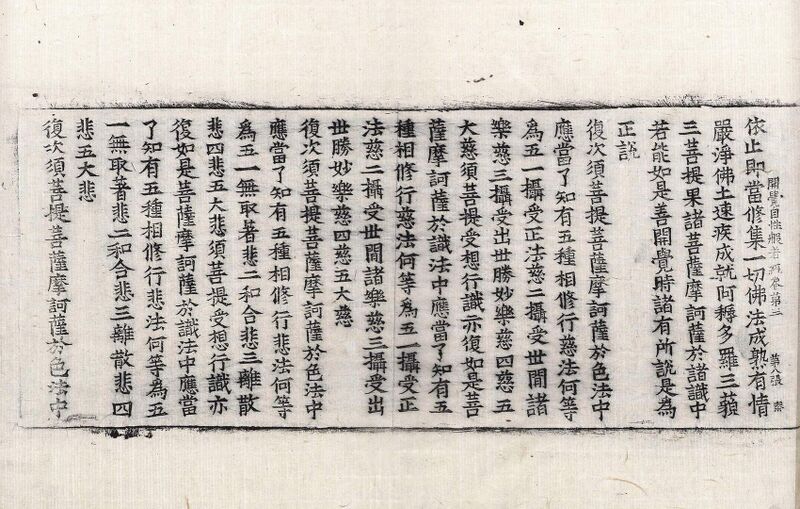 開覺自性般若經卷第三 第八張 禁
依止即當修集一切佛法成熟有情
嚴淨佛土速疾成就阿耨多羅三藐
三菩提果諸菩薩摩訶薩於諸識中
若能如是善開覺時諸有所說是為
正說
復次須菩提菩薩摩訶薩於色法中
應當了知有五種相修行慈法何等
為五一攝受正法慈二攝受世間諸
樂慈三攝受出世勝妙樂慈四慈五
大慈須菩提受想行識亦復如是菩
薩摩訶薩於識法中應當了知有五
種相修行慈法何等為五一攝受正
法慈二攝受世間諸樂慈三攝受出
世勝妙樂慈四慈五大慈
復次須菩提菩薩摩訶薩於色法中
應當了知有五種相修行悲法何等
為五一無取著悲二和合悲三離散
悲四悲五大悲須菩提受想行識亦
復如是菩薩摩訶薩於識法中應當
了知有五種相修行悲法何等為五
一無取著悲二和合悲三離散悲四
悲五大悲
復次須菩提菩薩摩訶薩於色法中